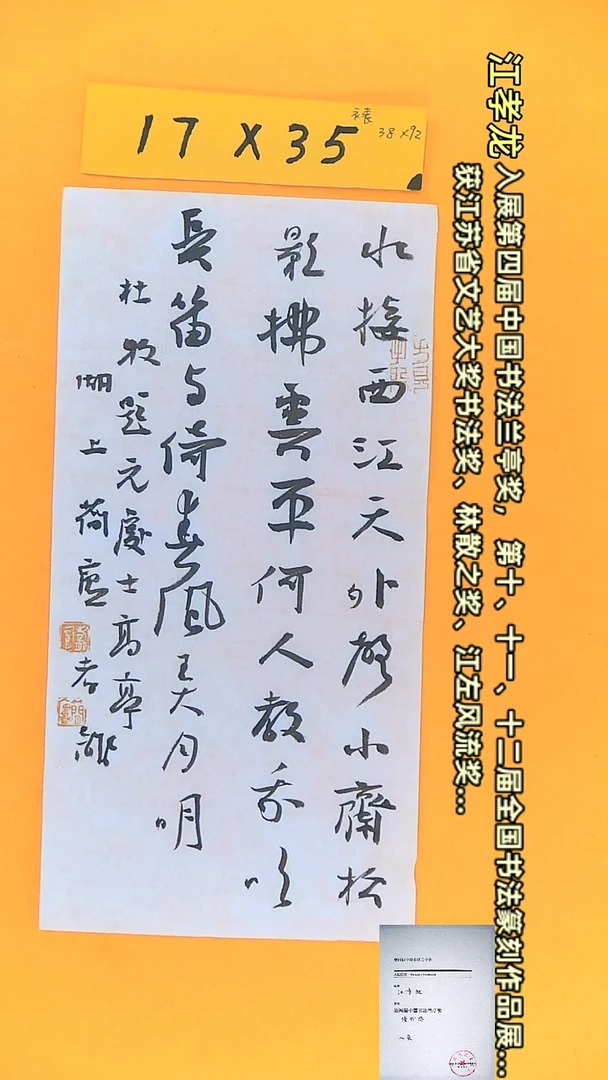 江孝龙 入展第四届中国书法兰亭奖，第十、十一、十二届全国书法篆刻作品展...
获江苏省文艺大奖书法奖、林散之奖、江左风流奖...
17 X 35
裱 38X92
水接西江天外聲小齋松
影拂雲平何人教我吹
長笛与倚春風弄月明
杜牧題元處士高亭
湖上荷廬孝龍